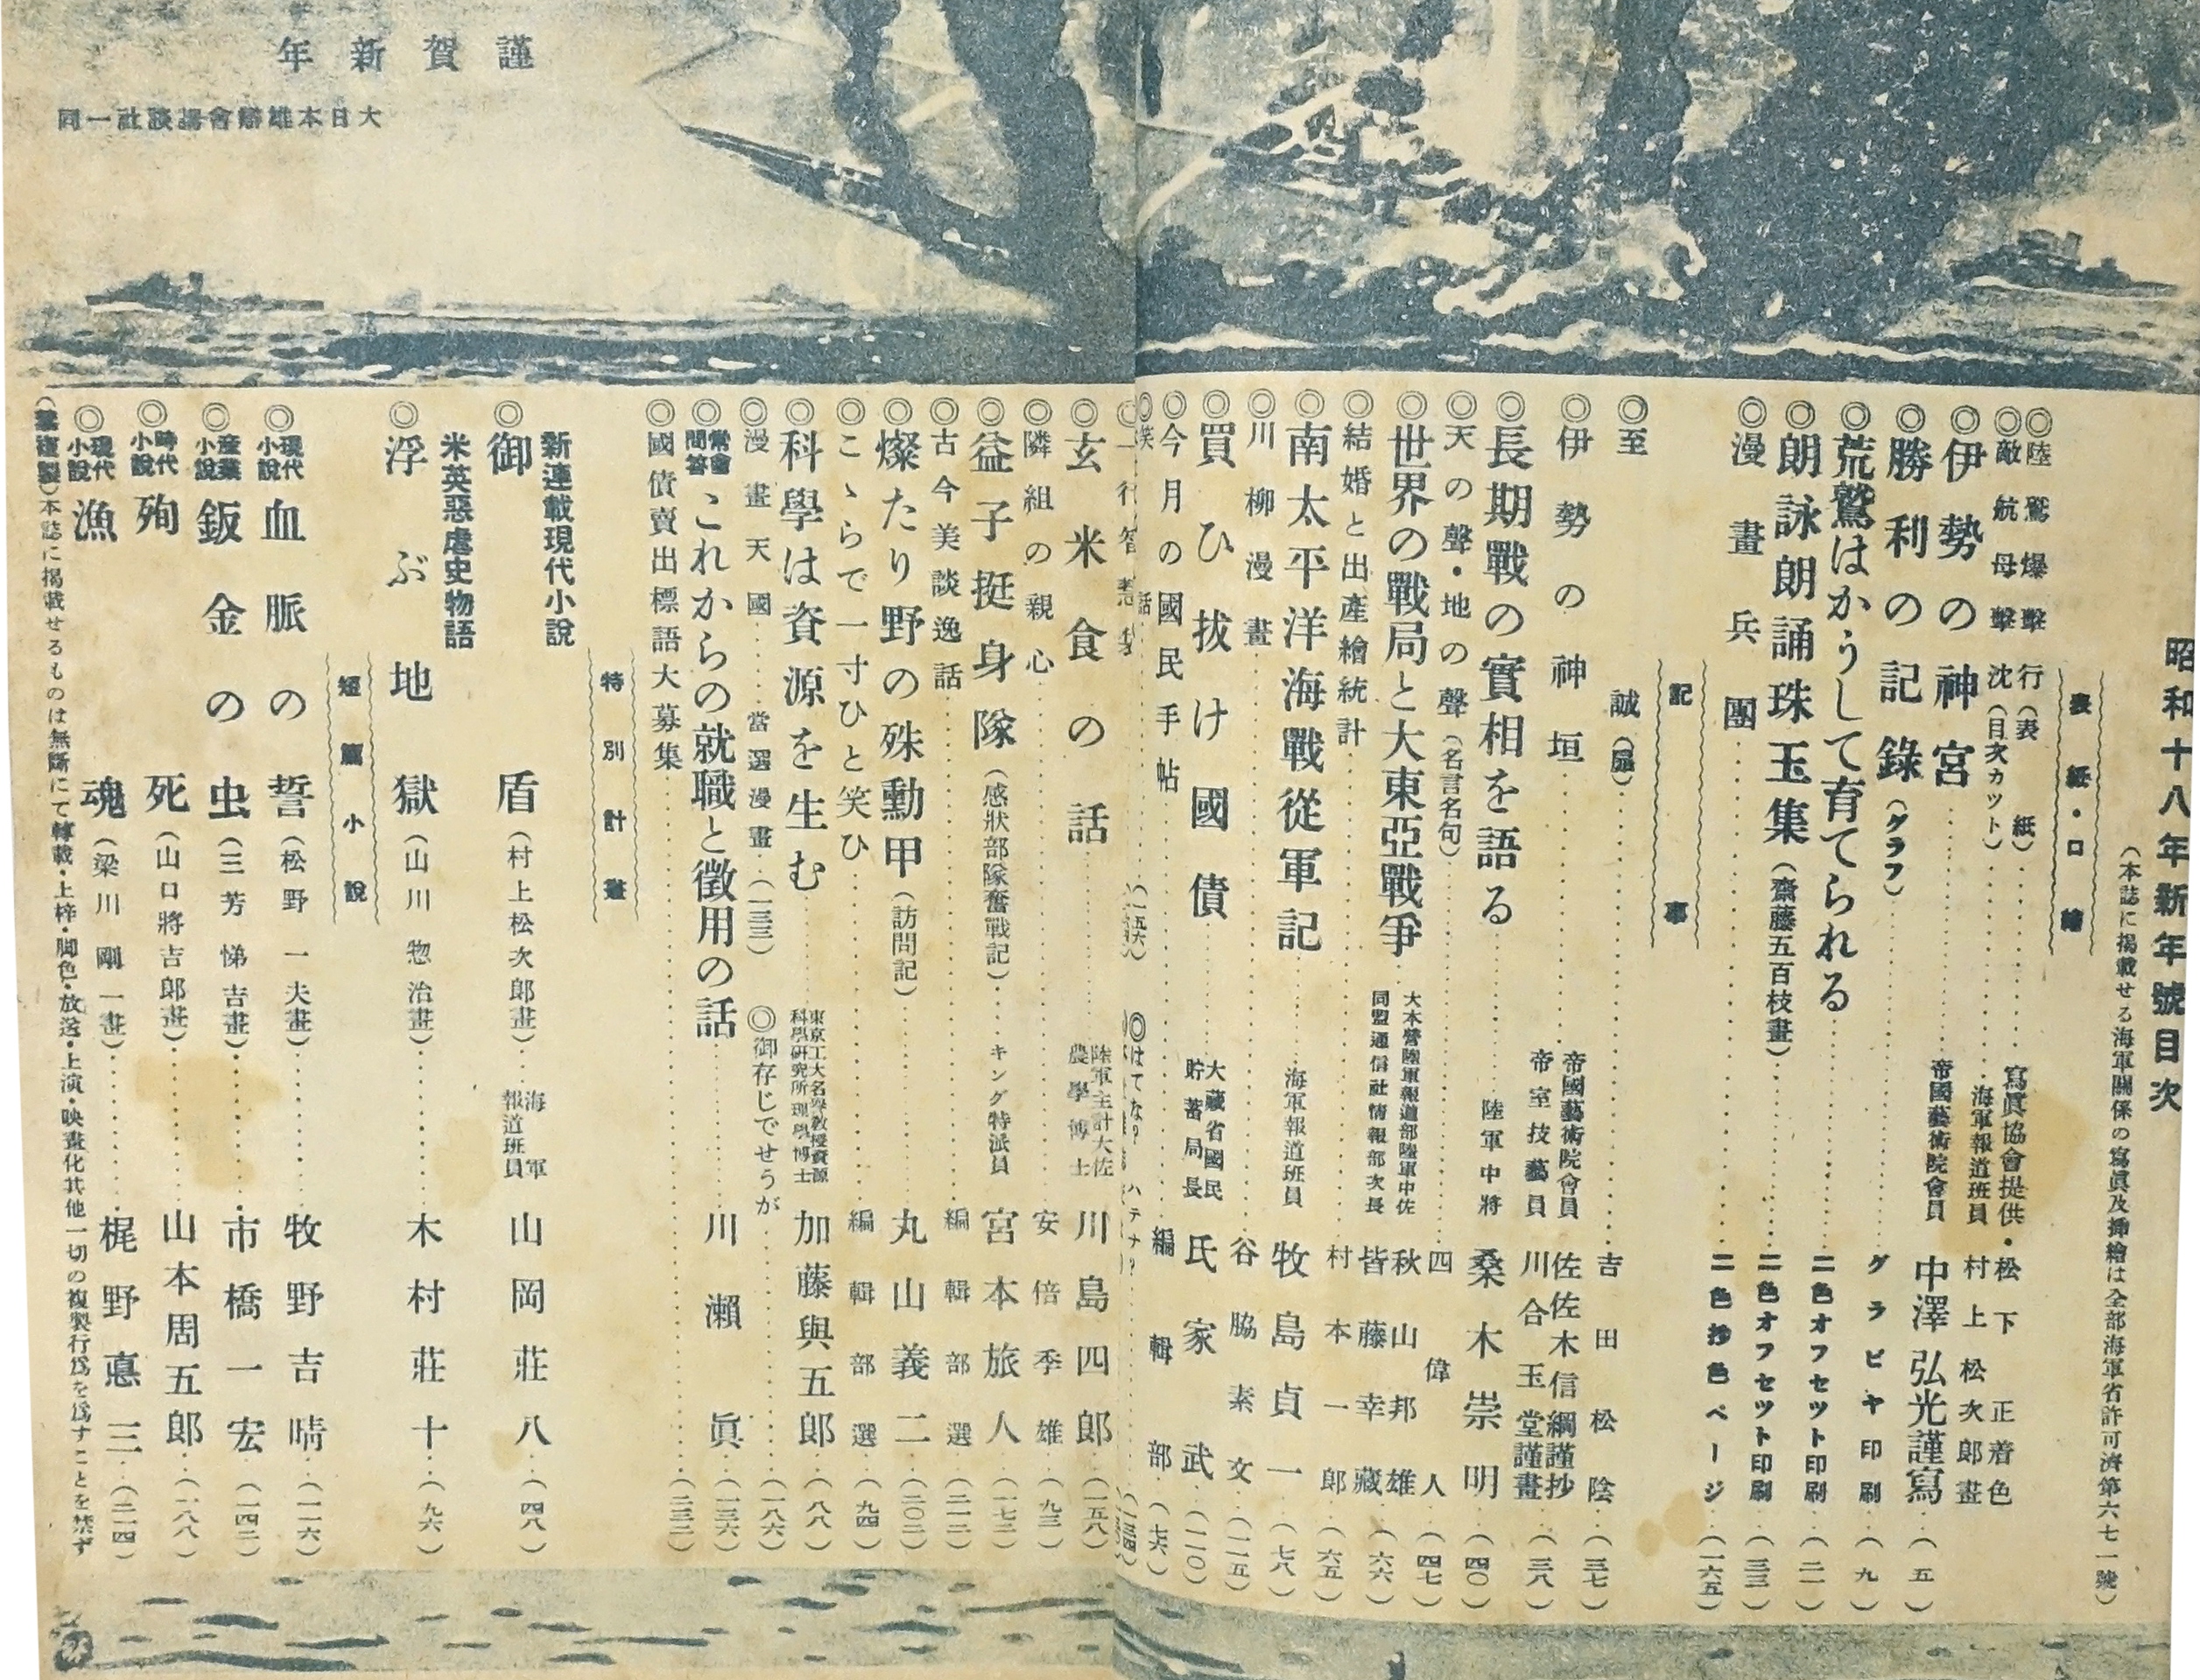 謹賀新年
大日本雄辯會講談社一同
昭和十八年新年號目次
(本誌に掲載せる海軍關係の寫眞及挿繪は全部海軍省許可濟第六七一號)
表紙・口繪
◎陸鷲爆擊行(表紙)…寫眞協會提供・松下正着色
◎敵航母擊沈(目次カット)…海軍報道班員 村上松次郎畫
◎伊勢の神宮…帝國藝術院會員 中澤弘光謹寫(五)
◎勝利の記錄(グラフ)…グラビヤ印刷(九)
◎荒鷲はかうして育てられる…二色オフセット印刷(二一)
◎朗詠朗誦珠玉集(齋藤五百枝畫)…二色オフセット印刷(三三)
◎漫畫兵團…二色抄色ページ(一六五)
記事
◎至誠(扉)…吉田松陰(三七)
◎伊勢の神垣…帝國藝術院會員 佐佐木信綱謹抄 帝室技藝員 川合玉堂謹畫(三八)
◎長期戰の實相を語る…陸軍中將 桑木崇明(四〇)
◎天の聲・地の聲(名言名句)…四偉人(四七)
◎世界の戰局と大東亞戰爭…大本營陸軍報道部陸軍中佐 秋山邦雄 同盟通信社情報部次長 皆藤幸藏(六六)
◎結婚と出產繪統計…村本一郎(六五)
◎南太平洋海戰從軍記…海軍報道班員 牧島貞一(七八)
◎川柳漫畫…谷脇素文(一一五)
◎買ひ拔け國債…大藏省國民貯蓄局長 氏家武(一一〇)
◎今月の國民手帖…編輯部(七六)
◎はてな?ハテナ?
◎玄米食の話…陸軍主計大佐 農學博士 川島四郎(一五八)
◎隣組の親心…安倍季雄(九三)
◎益子挺身隊(感狀部隊奮戰記)…キング特派員 宮本旅人(一七二)
◎古今美談逸話…編輯部選(二一二)
◎燦たり野の殊勳甲(訪問記)…丸山義二(二〇二)
◎こゝらで一寸ひと笑ひ…編輯部選(九四)
◎科學は資源を生む…東京工大名譽敎授資源科學硏究所理學博士 加藤與五郎(八八)
◎漫畫天國…當選漫畫…(一三三)
◎御存じでせうが…(一八六)
◎常會問答 これからの就職と徵用の話…川瀨眞(一三六)
◎國債賣出標語大募集…(二三二)
特別計畫
新連載現代小說
◎御盾(村上松次郎畫)…海軍報道班員 山岡莊八(四八)
米英惡虐史物語
◎浮ぶ地獄(山川惣治畫)…木村莊十(九六)
短篇小說
◎現代小說 血脈の誓(松野一夫畫)…牧野吉晴(一一六)
◎產業小說 鈑金の虫(三芳悌吉畫)…市橋一宏(一四二)
◎時代小說 殉死(山口將吉郎畫)…山本周五郎(一八八)
◎現代小說 漁魂(梁川剛一畫)…梶野悳三(二一四)
(禁複製)本誌に掲載せるものは無斷にて轉載・上梓・脚色・放送・上演・映畫化其他一切の複製行爲を爲すことを禁ず